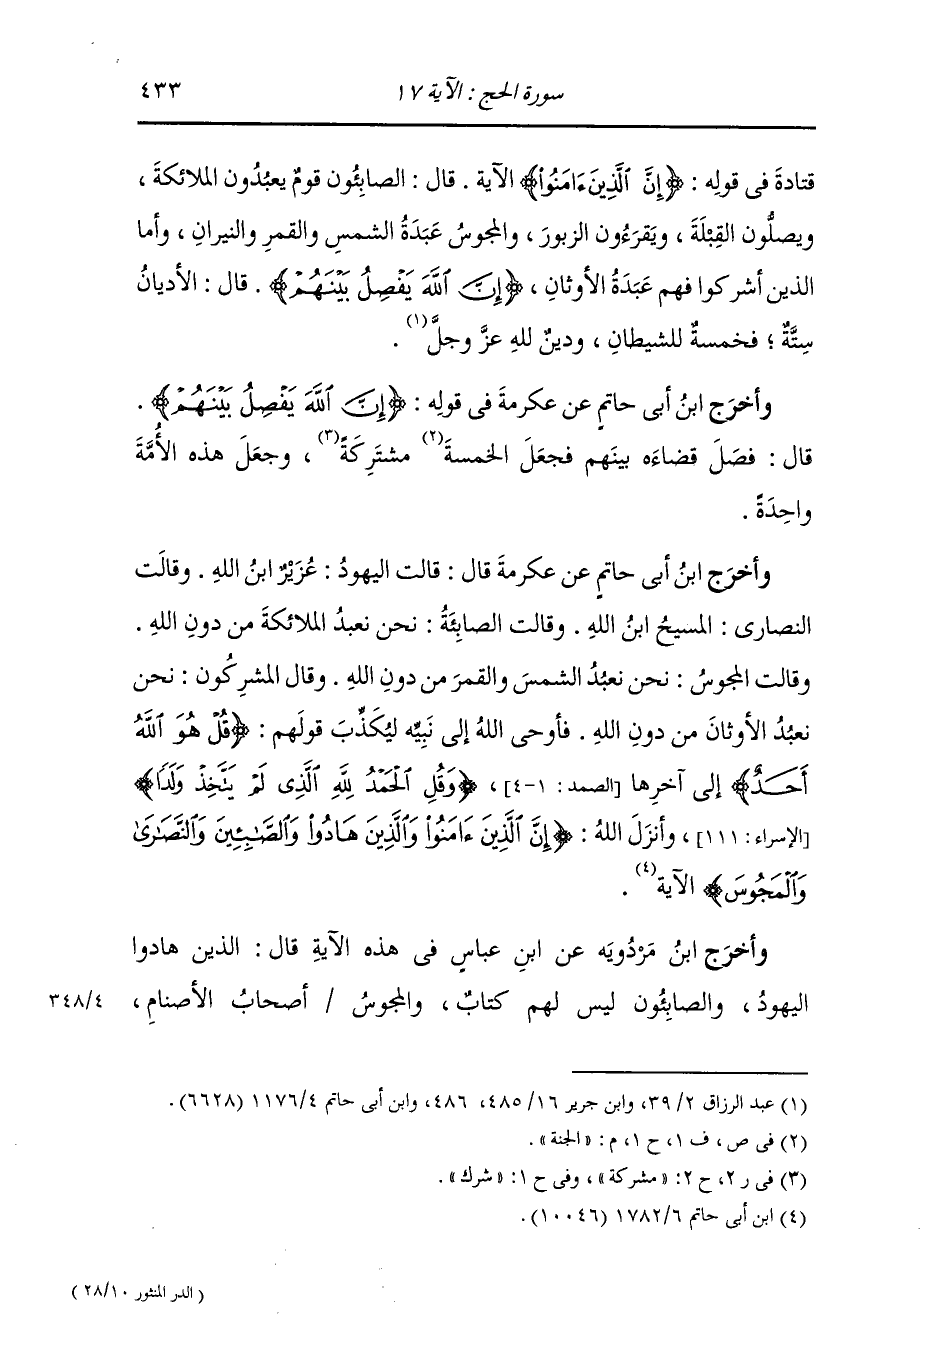 سورة الحج : الآية ١٧ ٤٣٣
قتادةَ فى قولِه : ﴿إِنَّ ٱلَّذِينَ ءَامَنُوا۟﴾ الآية . قال : الصابِئُون قومٌ يعبُدُون الملائكةَ ،
ويصلُّون القِبْلَةَ ، ويَقرَءُون الزبورَ ، والمجوسُ عَبَدَةُ الشمسِ والقمرِ والنيرانِ ، وأما
الذين أشركوا فهم عَبَدَةُ الأوثانِ ، ﴿إِنَّ ٱللَّهَ يَفْصِلُ بَيْنَهُمْ﴾ . قال : الأديانُ
سِتَّةٌ ؛ فخمسةٌ للشيطانِ ، ودينٌ للهِ عزَّ وجلَّ(١) .
وأخرَج ابنُ أبى حاتمٍ عن عكرمةَ فى قولِه : ﴿إِنَّ ٱللَّهَ يَفْصِلُ بَيْنَهُمْ﴾ .
قال : فصَلَ قضاءَه بينَهم فجعَلَ الخمسةَ(٢) مشتَرِكَةً(٣) ، وجعَلَ هذه الأُمَّةَ
واحِدَةً .
وأخرَج ابنُ أبى حاتمٍ عن عكرمةَ قال : قالت اليهودُ : عُزَيْرٌ ابنُ اللهِ . وقالَت
النصارى : المسيحُ ابنُ اللهِ . وقالت الصابِئَةُ : نحن نعبدُ الملائكةَ من دونِ اللهِ .
وقالت المجوسُ : نحن نعبُدُ الشمسَ والقمرَ من دونِ اللهِ . وقال المشرِكُون : نحن
نعبُدُ الأوثانَ من دونِ اللهِ . فأوحى اللهُ إلى نَبِيِّه ليُكَذِّبَ قولَهم : ﴿قُلْ هُوَ ٱللَّهُ
أَحَدٌ﴾ إلى آخرِها [الصمد : ١-٤] ، ﴿وَقُلِ ٱلْحَمْدُ لِلَّهِ ٱلَّذِى لَمْ يَتَّخِذْ وَلَدًا﴾
[الإسراء : ١١١] ، وأنزَلَ اللهُ : ﴿إِنَّ ٱلَّذِينَ ءَامَنُوا۟ وَٱلَّذِينَ هَادُوا۟ وَٱلصَّـٰبِـِٔينَ وَٱلنَّصَـٰرَىٰ
وَٱلْمَجُوسَ﴾ الآية(٤) .
وأخرَج ابنُ مَرْدُويَه عن ابنِ عباسٍ فى هذه الآيةِ قال : الذين هادوا
اليهودُ ، والصابِئُون ليس لهم كتابٌ ، والمجوسُ / أصحابُ الأصنامِ ، ٣٤٨/٤
(١) عبد الرزاق ٣٩/٢ ، وابن جرير ٤٨٥/١٦ ، ٤٨٦ ، وابن أبى حاتم ١١٧٦/٤ (٦٦٢٨) .
(٢) فى ص ، ف ١ ، ح ١ ، م : « الجنة » .
(٣) فى ر ٢ ، ح ٢ : « مشركة » ، وفى ح ١ : « شرك » .
(٤) ابن أبى حاتم ١٧٨٢/٦ (١٠٠٤٦) .
( الدر المنثور ٢٨/١٠ )